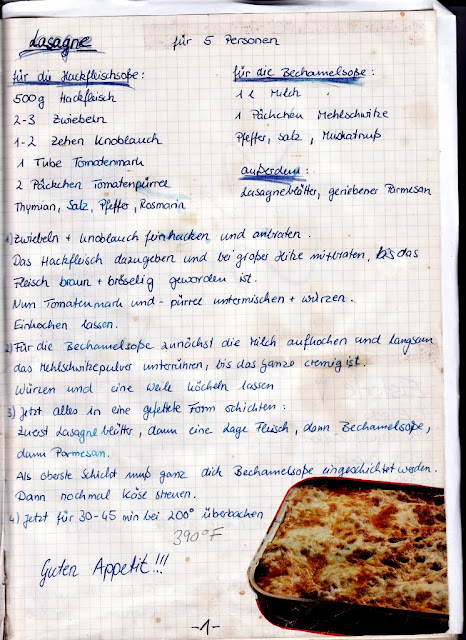 Lasagne für 5 Personen
für die Hackfleischsoße:
500g Hackfleisch
2-3 Zwiebeln
1-2 Zehen Knoblauch
1 Tube Tomatenmark
2 Päckchen Tomatenpürree
Thymian, Salz, Pfeffer, Rosmarin
für die Bechamelsoße:
1 l Milch
1 Päckchen Mehlschwitze
Pfeffer, Salz, Muskatnuß
außerdem:
Lasagneblätter, geriebener Parmesan
1) Zwiebeln + Knoblauch feinhacken und anbraten.
Das Hackfleisch dazugeben und bei großer Hitze mitbraten, bis das
Fleisch braun + bröselig geworden ist.
Nun Tomatenmark und -pürree untermischen + würzen.
Einkochen lassen.
2) Für die Bechamelsoße zunächst die Milch aufkochen und langsam
das Mehlschwitzepulver unterrühren, bis das Ganze cremig ist.
Würzen und eine Weile köcheln lassen
3) Jetzt alles in eine gefettete Form schichten:
Zuerst Lasagneblätter, dann eine Lage Fleisch, dann Bechamelsoße,
dann Parmesan.
Als oberste Schicht muß ganz dick Bechamelsoße eingeschichtet werden.
Dann nochmal Käse streuen.
4) Jetzt für 30-45 min bei 200° überbacken
390°F
Guten Appetit!!!
-1-